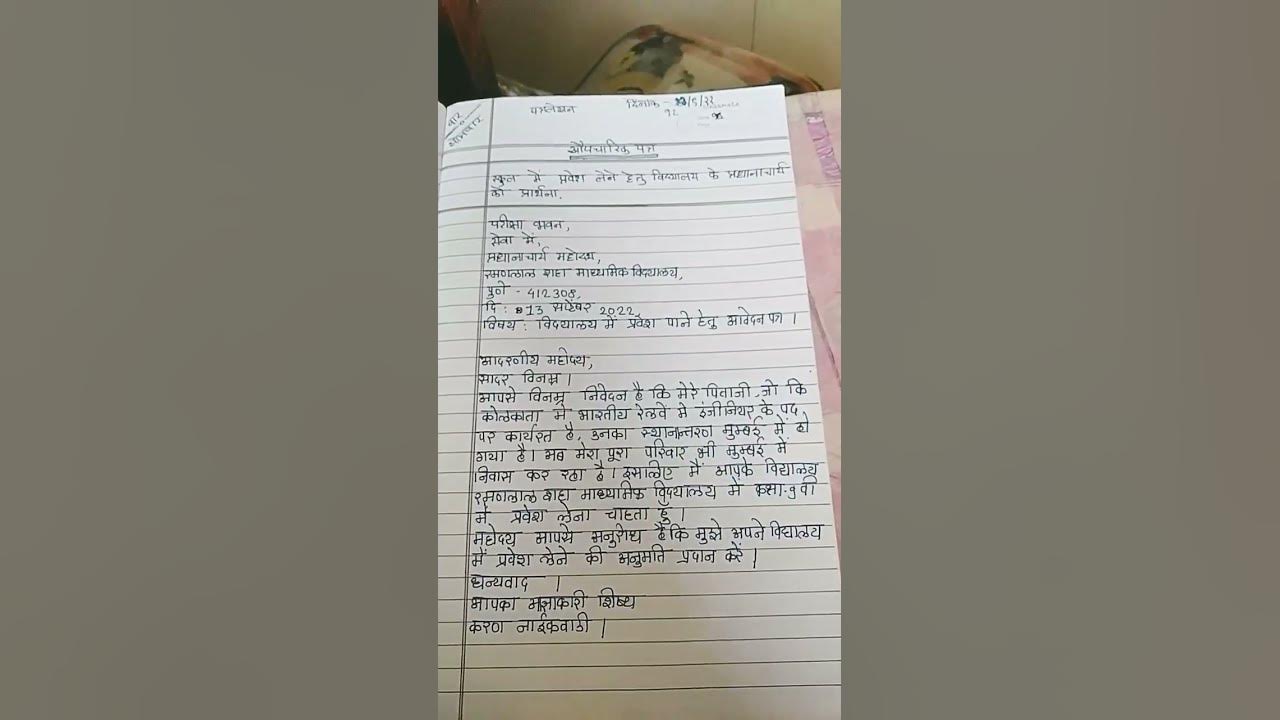 वार
सोमवार
पत्रलेखन
दिनांक -
12
औपचारिक पत्र
स्कुल में प्रवेश लेने हेतु विद्यालय के प्रधानाचार्य
को प्रार्थना.
परीक्षा भवन,
सेवा में,
प्रधानाचार्य महोदय,
रमणलाल शहा माध्यमिक विद्यालय,
पुणे - 412308,
दि : 13 सप्टेंबर 2022,
विषय : विद्यालय में प्रवेश पाने हेतु आवेदन पत्र ।
आदरणीय महोदय,
सादर विनम्र ।
आपसे विनम्र निवेदन है कि मेरे पिताजी, जो कि
कोलकाता मे भारतीय रेलवे मे इंजीनियर के पद
पर कार्यरत है, उनका स्थानान्तरण मुम्बई में हो
गया है। अब मेरा पूरा परिवार भी मुम्बई में
निवास कर रहा है। इसलिए मैं आपके विद्यालय
रमणलाल शहा माध्यमिक विद्यालय में कक्षा-9 वी
में प्रवेश लेना चाहता हूँ ।
महोदय आपसे अनुरोध है कि मुझे अपने विद्यालय
में प्रवेश लेने की अनुमति प्रदान करें |
धन्यवाद |
आपका आज्ञाकारी शिष्य
करण नाईकवाडी |